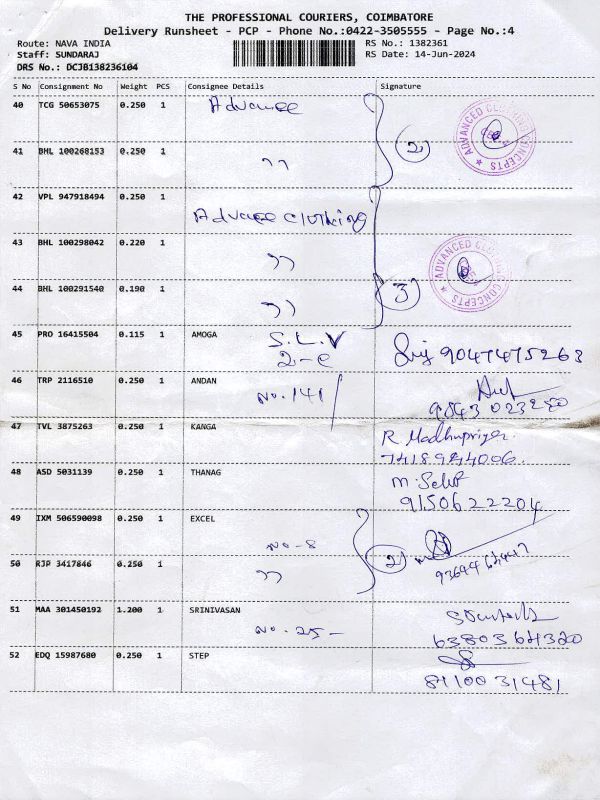 THE PROFESSIONAL COURIERS, COIMBATORE
Delivery Runsheet - PCP - Phone No.:0422-3505555 - Page No.:4
Route: NAVA INDIA RS No.: 1382361
Staff: SUNDARAJ RS Date: 14-Jun-2024
DRS No.: DCJB138236104
S No Consignment No Weight PCS Consignee Details Signature
40 TCG 50653075 0.250 1 Advance
ADVANCED CLOTHING CONCEPTS
41 BHL 100268153 0.250 1 " 2
42 VPL 947918494 0.250 1
Advance clothing
43 BHL 100298042 0.220 1 "
ADVANCED CLOTHING CONCEPTS
44 BHL 100291540 0.190 1 " 3
45 PRO 16415504 0.115 1 AMOGA S.L.V
2-e 9047475263
46 TRP 2116510 0.250 1 ANDAN No. 141
9843 023250
47 TVL 3875263 0.250 1 KANGA R Madhupriya
7418944006
48 ASD 5031139 0.250 1 THANAG M. Selvi
9150622204
49 IXM 506590098 0.250 1 EXCEL
No-8
50 RJP 3417846 0.250 1 " 2
51 MAA 301450192 1.200 1 SRINIVASAN
No. 25- 6380364320
52 EDQ 15987680 0.250 1 STEP
8110031481